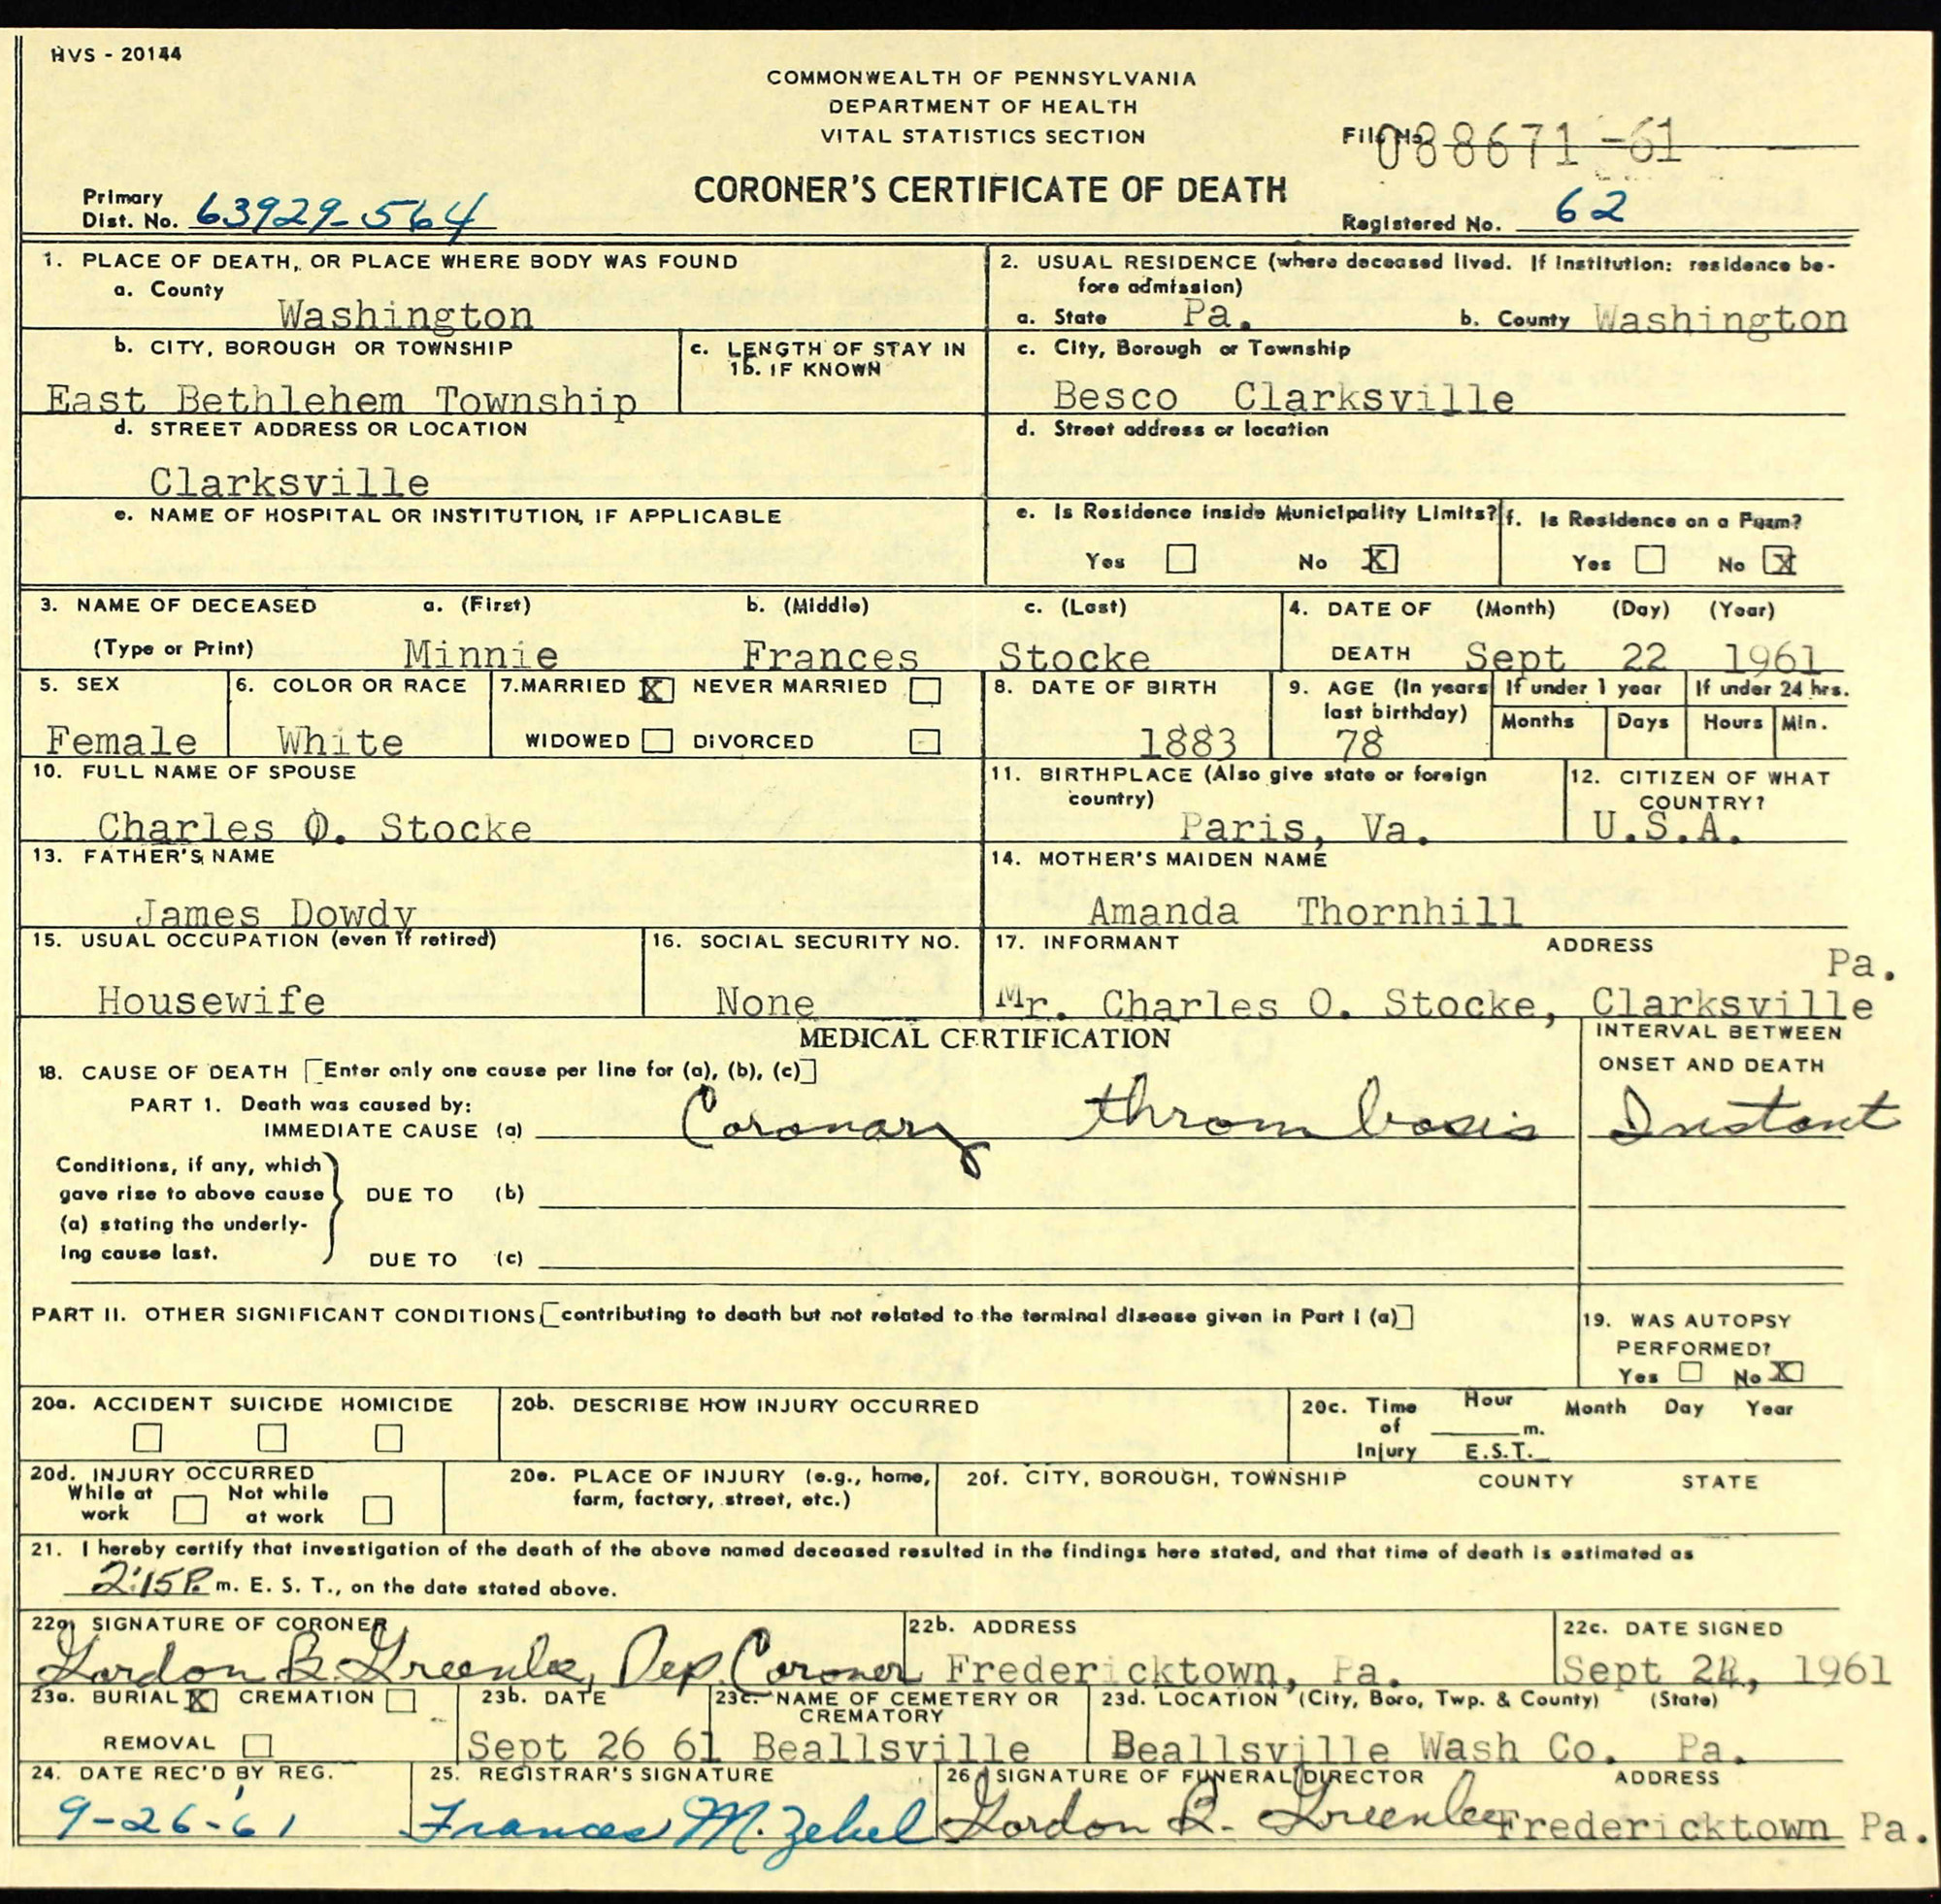 HVS - 20144
COMMONWEALTH OF PENNSYLVANIA
DEPARTMENT OF HEALTH
VITAL STATISTICS SECTION
File No. 088671-61
CORONER'S CERTIFICATE OF DEATH
Primary
Dist. No. 63929-564
Registered No. 62
1. PLACE OF DEATH, OR PLACE WHERE BODY WAS FOUND
a. County
Washington
2. USUAL RESIDENCE (where deceased lived. If institution: residence be-
fore admission)
a. State Pa. b. County Washington
b. CITY, BOROUGH OR TOWNSHIP
East Bethlehem Township
c. LENGTH OF STAY IN
1b. IF KNOWN
c. City, Borough or Township
Besco Clarksville
d. STREET ADDRESS OR LOCATION
Clarksville
d. Street address or location
e. NAME OF HOSPITAL OR INSTITUTION, IF APPLICABLE
e. Is Residence inside Municipality Limits?
Yes No X
f. Is Residence on a Farm?
Yes No X
3. NAME OF DECEASED a. (First) b. (Middle) c. (Last)
(Type or Print) Minnie Frances Stocke
4. DATE OF (Month) (Day) (Year)
DEATH Sept 22 1961
5. SEX
Female
6. COLOR OR RACE
White
7. MARRIED X NEVER MARRIED
WIDOWED DIVORCED
8. DATE OF BIRTH
1883
9. AGE (In years
last birthday)
78
If under 1 year
Months Days
If under 24 hrs.
Hours Min.
10. FULL NAME OF SPOUSE
Charles O. Stocke
11. BIRTHPLACE (Also give state or foreign
country)
Paris, Va.
12. CITIZEN OF WHAT
COUNTRY?
U.S.A.
13. FATHER'S NAME
James Dowdy
14. MOTHER'S MAIDEN NAME
Amanda Thornhill
15. USUAL OCCUPATION (even if retired)
Housewife
16. SOCIAL SECURITY NO.
None
17. INFORMANT ADDRESS
Pa.
Mr. Charles O. Stocke, Clarksville
MEDICAL CERTIFICATION
INTERVAL BETWEEN
ONSET AND DEATH
18. CAUSE OF DEATH [Enter only one cause per line for (a), (b), (c)]
PART 1. Death was caused by:
IMMEDIATE CAUSE (a) Coronary thrombosis Instant
Conditions, if any, which
gave rise to above cause
(a) stating the underly-
ing cause last.
DUE TO (b)
DUE TO (c)
PART II. OTHER SIGNIFICANT CONDITIONS [contributing to death but not related to the terminal disease given in Part I (a)]
19. WAS AUTOPSY
PERFORMED?
Yes No X
20a. ACCIDENT SUICIDE HOMICIDE
20b. DESCRIBE HOW INJURY OCCURRED
20c. Time
of
Injury
Hour
m.
E.S.T.
Month Day Year
20d. INJURY OCCURRED
While at
work
Not while
at work
20e. PLACE OF INJURY (e.g., home,
farm, factory, street, etc.)
20f. CITY, BOROUGH, TOWNSHIP COUNTY STATE
21. I hereby certify that investigation of the death of the above named deceased resulted in the findings here stated, and that time of death is estimated as
2:15 P. m. E. S. T., on the date stated above.
22a. SIGNATURE OF CORONER
Gordon B. Greenlee, Dep. Coroner
22b. ADDRESS
Fredericktown, Pa.
22c. DATE SIGNED
Sept 24, 1961
23a. BURIAL X CREMATION
REMOVAL
23b. DATE
Sept 26 61
23c. NAME OF CEMETERY OR
CREMATORY
Beallsville
23d. LOCATION (City, Boro, Twp. & County) (State)
Beallsville Wash Co. Pa.
24. DATE REC'D BY REG.
9-26-61
25. REGISTRAR'S SIGNATURE
Frances M. Zebel
26. SIGNATURE OF FUNERAL DIRECTOR ADDRESS
Gordon B. Greenlee Fredericktown Pa.